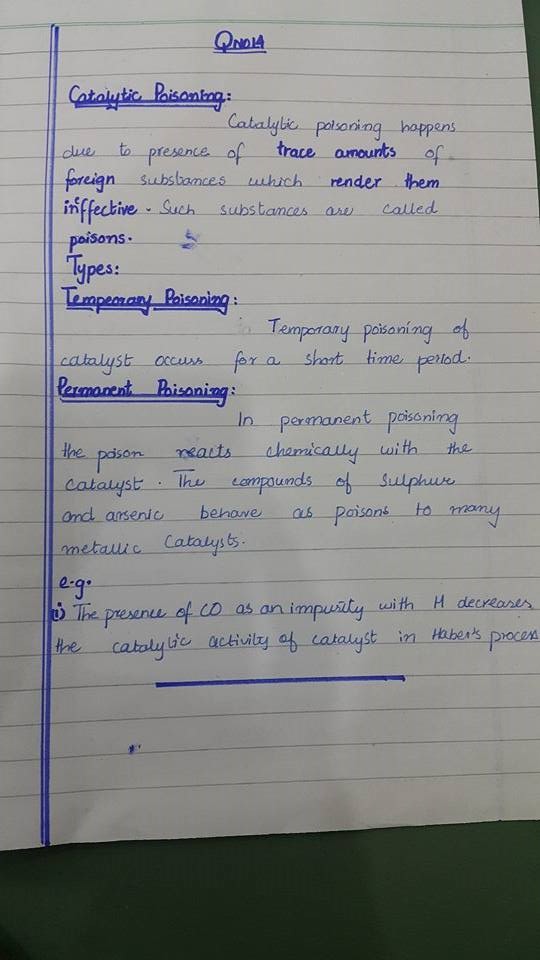 QNO14
Catalytic Poisoning:
Catalytic poisoning happens
due to presence of trace amounts of
foreign substances which render them
inffective. Such substances are called
poisons.
Types:
Temperary Poisoning:
Temporary poisoning of
catalyst occurs for a short time period.
Permanent Poisoning:
In permanent poisoning
the poison reacts chemically with the
catalyst. The compounds of Sulphur
and arsenic behave as poisons to many
metallic Catalysts.
e.g.
(i) The presence of CO as an impurity with H decreases
the catalytic activity of catalyst in Haber's process